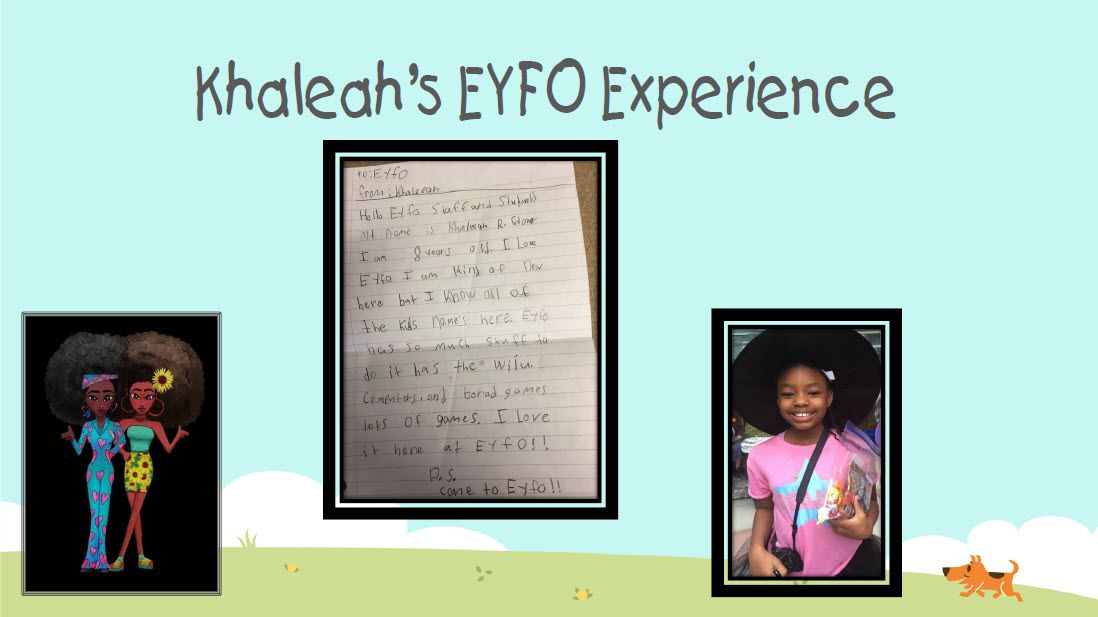 Khaleah's EYFO Experience
to: Eyfo
from: Khaleeah
Hello Eyfo Staff and
My Name is Khaleeah R.
I am 8 years old. I Love
Eyfo I am Kind of New
here but I Know all of
the kids Name's here. Eyfo
has so much stuff to
do it has the Wiiu.
and borad games
lots of games. I Love
it here at EYfO!!
P.S.
come to Eyfo!!